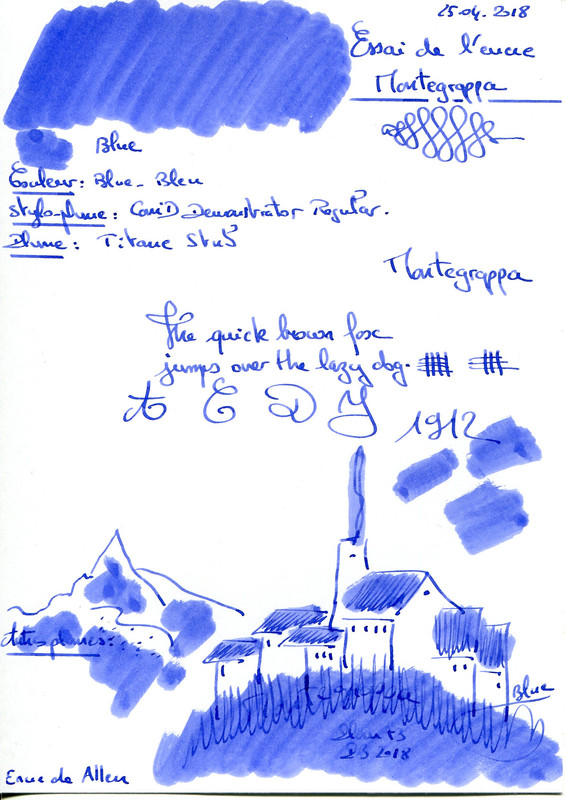 25.04.2018
Essai de l'encre
Montegrappa
Blue
Couleur: Blue - Bleu
Stylo-plume: Conid Demonstrator Regular.
Plume: Titane Stub
Montegrappa
The quick brown fox
jumps over the lazy dog.
A E D Y
1912
Autres plumes:
Blue
2018
Encre de Allen